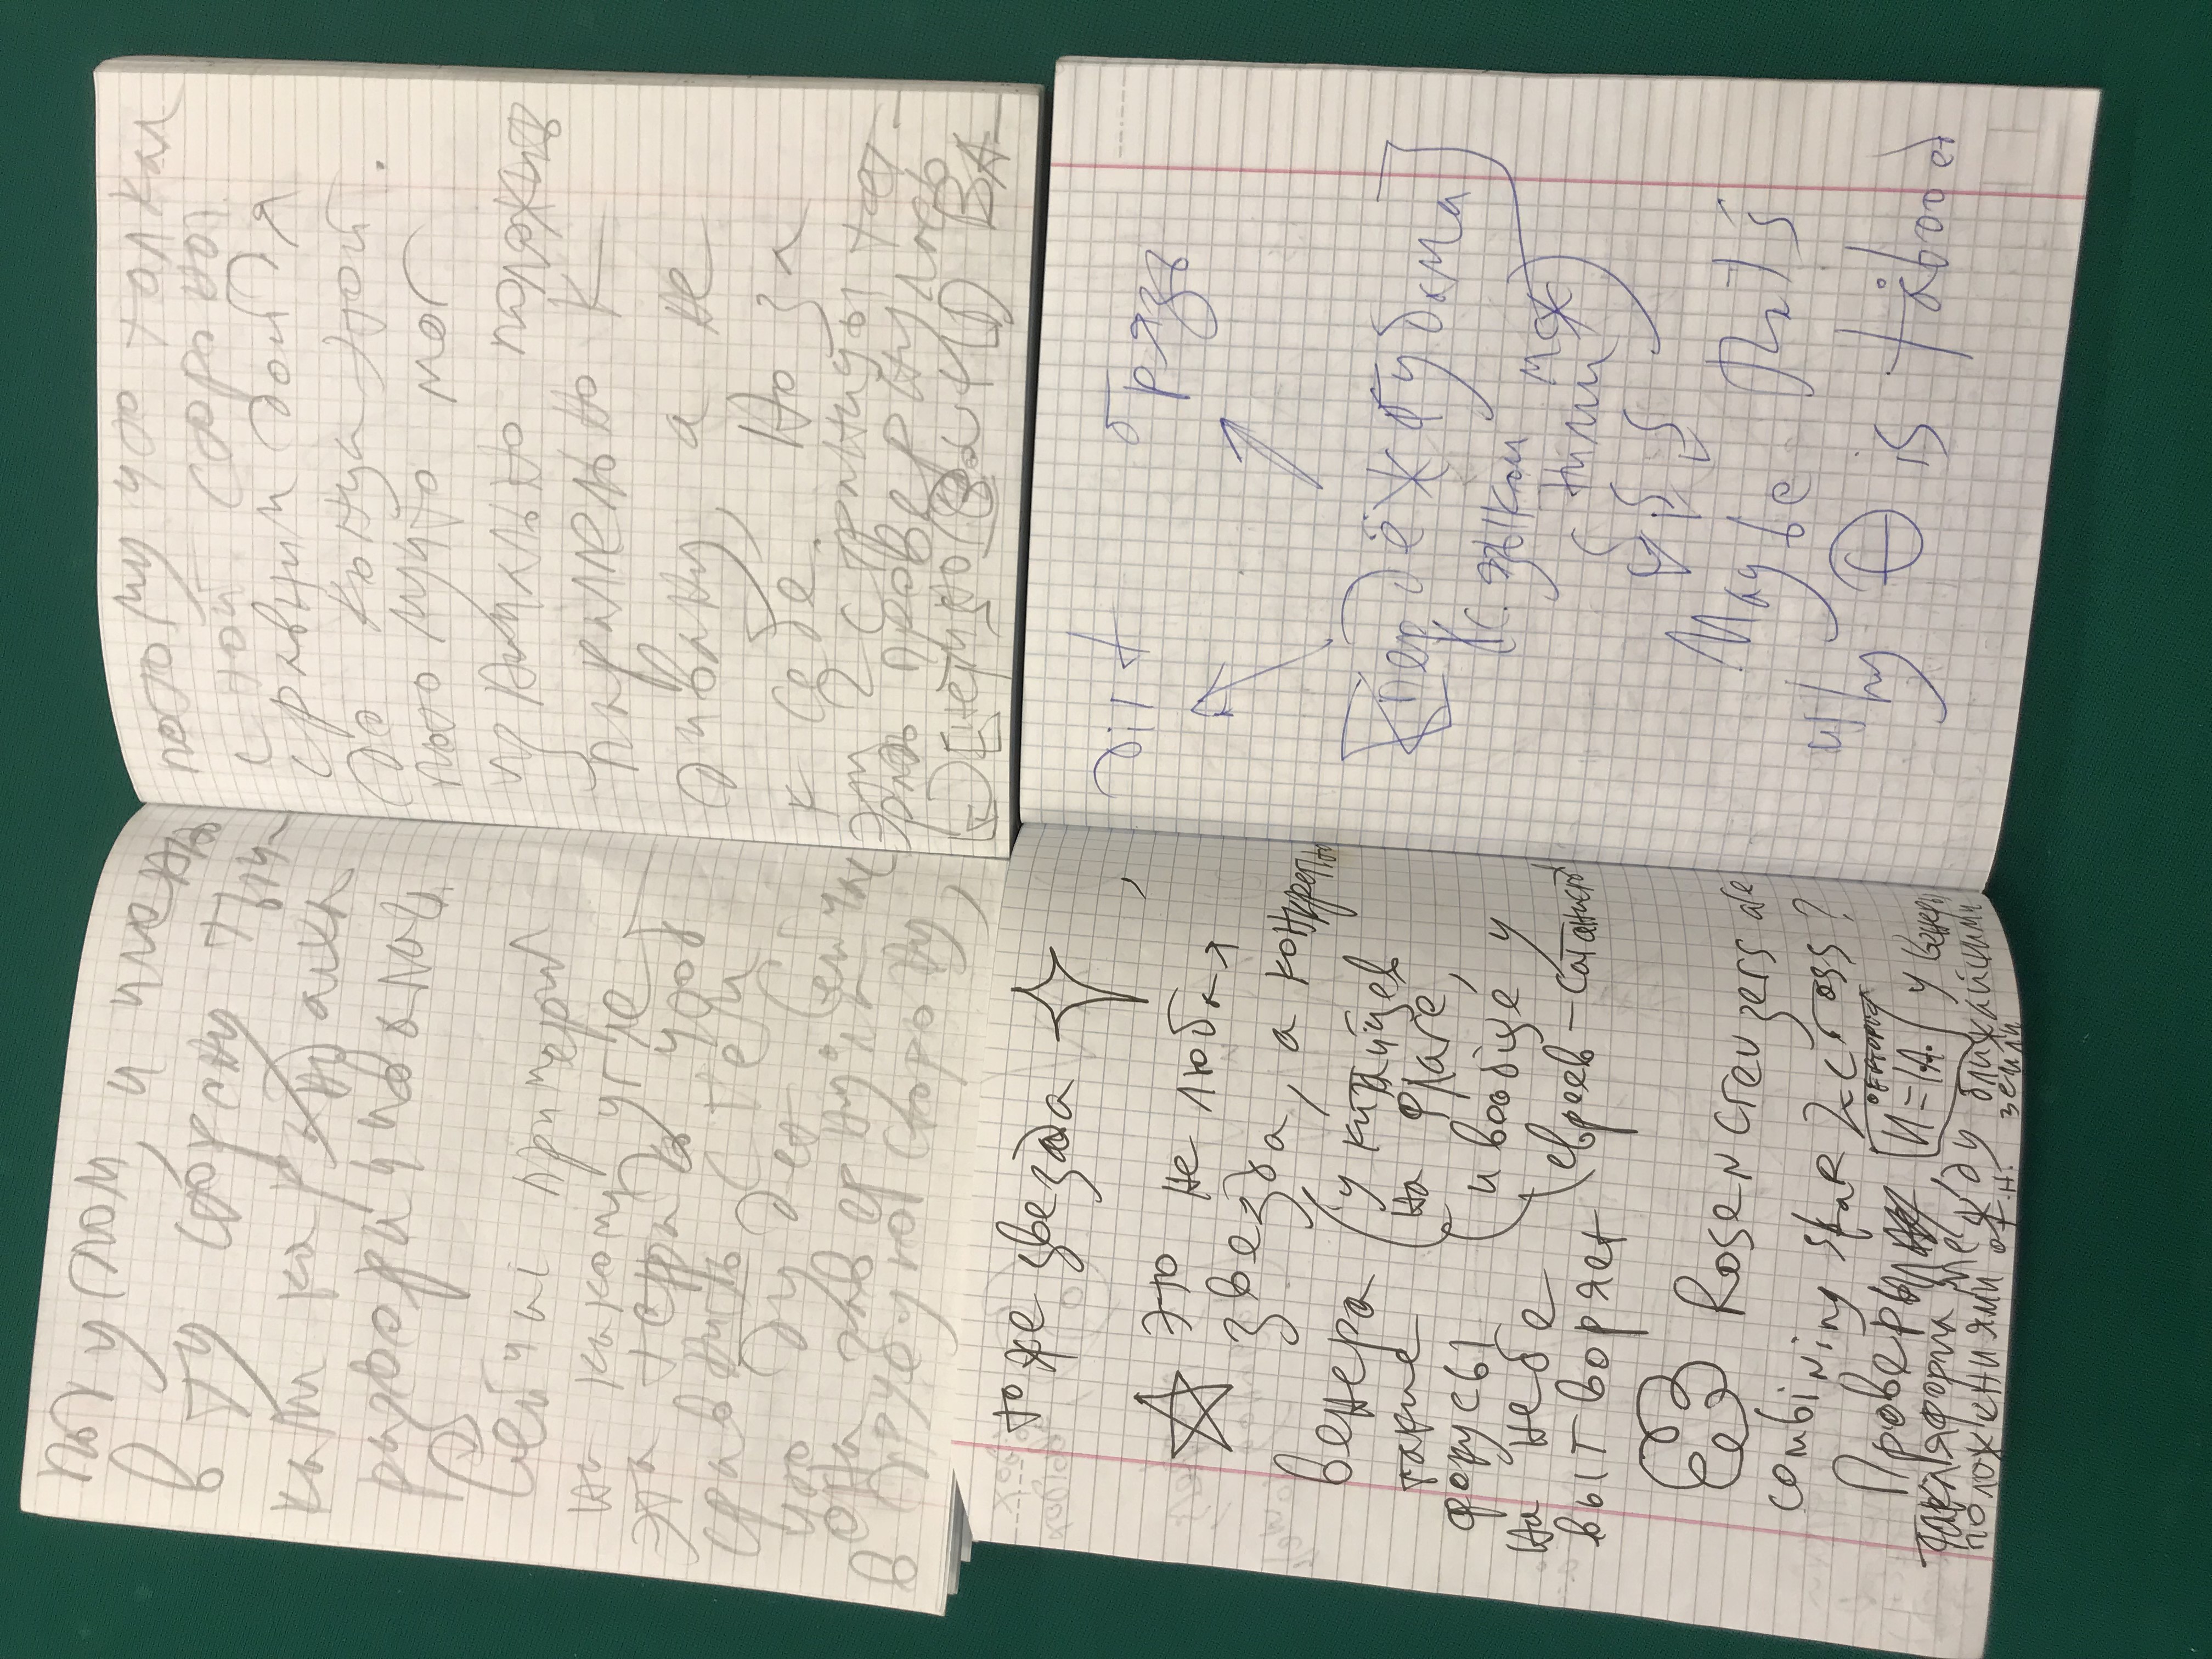 под углом, и можно
в ту сторону тыч-
ками карандаха
разворачивали.
Сейчас примерил
на каком угле
эта тетрадь чтоб
сравнить с тем
что будет. Сейчас
она завернула
в другую сторону,
потому что толкал
с той стороны.
сравним дойдя
до конца этой.
потому что мог
изначально положить
параллельно к
дивану, а не
к себе. Но за
эти 2 страницы тет-
радь провернулась
тоже звезда
это не любая
звезда, а конкретно
Венера (у китайцев
такие на флаге,
фокусы и вообще у
на небе евреев-сатанистов
вытворяет
Rosencreuzers are
combining star & cross?
Проверил,
И = I.A. у Венеры
такая форма между ближайшими
положениями от.н. земли
dirt грязь
пердёж губами
(с языком меж
ними)
Maybe that's
why Θ is tabooed